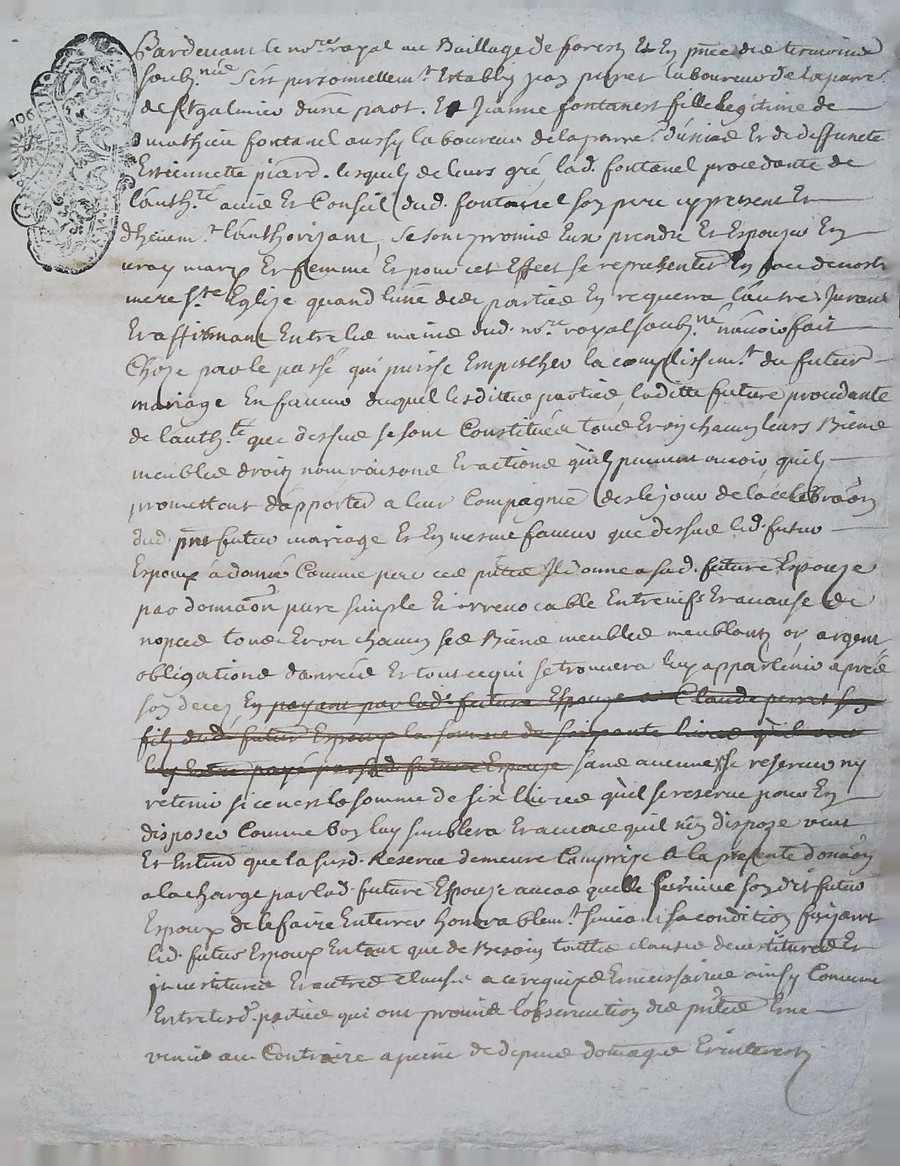 Pardevant le no.re royal au Bailliage de forest Et En pnce des temoins
soub.nés Sest personnellem.t Estably jean perret laboureur de la parr.e
de St galmier dune part. Et Jeanne fontanel fille Legitime de
mathieu fontanel aussy laboureur de la parr.e Et de deffuncte
Estiennette piard. lesquels de leurs gré lad. fontanel procedante de
lauth.té avis Et Conseil dud. fontanel son pere cy present Et
dheuem.t lauthorisant, se sont promis Eux prendre Et Espouser En
vray mary Et femme Et pour cet Effect se representer En face de nostre
mere S.te Eglize quand lune des parties En requerra lautre, Jurant
Et affirmant Entre les mains dud. no.re royal soub.né navoir fait
Choze par le passé qui puisse Empescher la complissem.t du futur
mariage En faveur duquel lesdittes parties laditte future procedante
de lauth.té que dessus se sont Constitués tous Et un chacun leurs Biens
meubles droits noms raisons Et actions quils peuvent avoir quils
promettent dapporter a leur Compagnie des le jour de la celebraôn
dud. pnt futur mariage Et En mesme faveur que dessus led. futur
Espoux à donné Comme par ces pntes Il donne a sad. future Espouze
par donnaôn pure simple Et irrevocable Entre vifs Et a cause de
nopces tous Et un chacun ses Biens meubles meublants or argent
obligations danrées Et tout ce qui se trouvera luy appartenir apres
son deces En payant par lad. future Espouze a Claude perret son
fils dud. futur Espoux la somme de soixante livres quil
luy Estre payé par sad. future Espouze sans aucune se reserver ny
retenir si ce nest la somme de six livres quil se reserve pour En
disposer Comme bon luy semblera Et a cas quil nen dispoze veut
Et Entend que la susd. Reserve demeure Comprise A la presente donaôn
a la charge par lad. future Espouze au cas quelle survive son dit futur
Espoux de le faire Enterrer honorablem.t suivant sa condition faisant
led. futur Espoux En tant que de Besoin touttes clauses devestitures Et
investitures Et autres Clauses a ce requizes Et necessaires ainsy Convenu
Entre lesd. parties qui ont promis lobservation des pntes Et ne
venir au Contraire a peine de depens domages Et interests